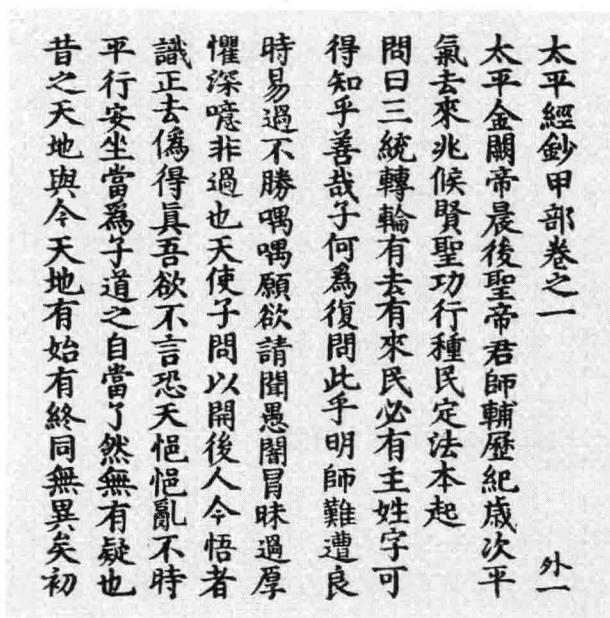 太平經鈔甲部卷之一　外一
太平金闕帝晨後聖帝君師輔歷紀歲次平
氣去來兆候賢聖功行種民定法本起
問曰三統轉輪有去有來民必有主姓字可
得知乎善哉子何爲復問此乎明師難遭良
時易過不勝喁喁願欲請聞愚闇冒昧過厚
懼深噫非過也天使子問以開後人今悟者
識正去僞得眞吾欲不言恐天悒悒亂不時
平行安坐當爲子道之自當了然無有疑也
昔之天地與今天地有始有終同無異矣初